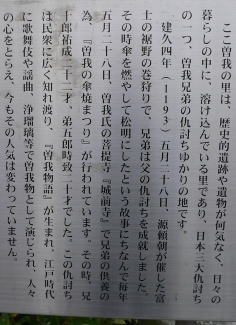 ここ曽我の里は、歴史的遺跡や遺物が何気なく、日々の
暮らしの中に、溶け込んでいる里であり、日本三大仇討ち
の一つ、曽我兄弟の仇討ちゆかりの地です。
建久四年（1193）五月二十八日、源頼朝が催した富
士の裾野の巻狩りで、兄弟は父の仇討ちを成就しました。
その時傘を燃やして松明にしたという故事にちなんで毎年
五月二十八日、曽我氏の菩提寺『城前寺』で兄弟の供養の
為、『曽我の傘焼まつり』が行われています。その時、兄
十郎祐成二十二才、弟五郎時致二十才でした。この仇討ち
は民衆に広く知れ渡り、『曽我物語』が生まれ、江戸時代
に歌舞伎や謡曲、浄瑠璃等で曽我物として演じられ、人々
の心をとらえ、今もその人気は変わっていません。